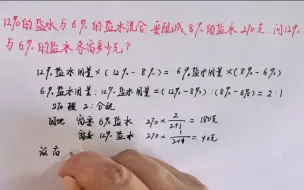 12%的盐水与6%的盐水混合,要配成8%的盐水270克,问12%
与6%的盐水各需多少克?
12%盐水用量×(12%-8%)=6%盐水用量×(8%-6%)
6%盐水用量:12%盐水用量=(12%-8%):(8%-6%)=2:1
270按2:1分配
因此 需要6%盐水 270×2/(2+1)=180克
需要12%盐水 270×1/(2+1)=90克